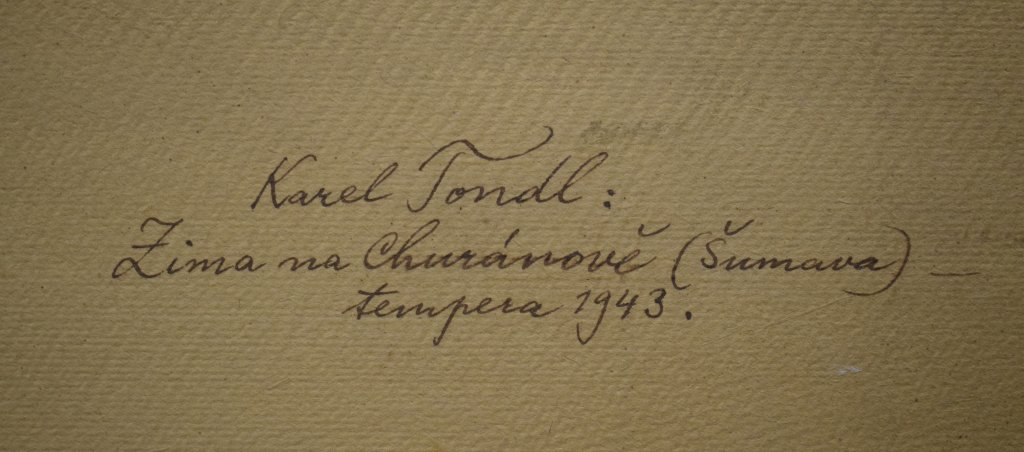 Karel Tondl:
Zima na Churánově (Šumava) —
tempera 1943.